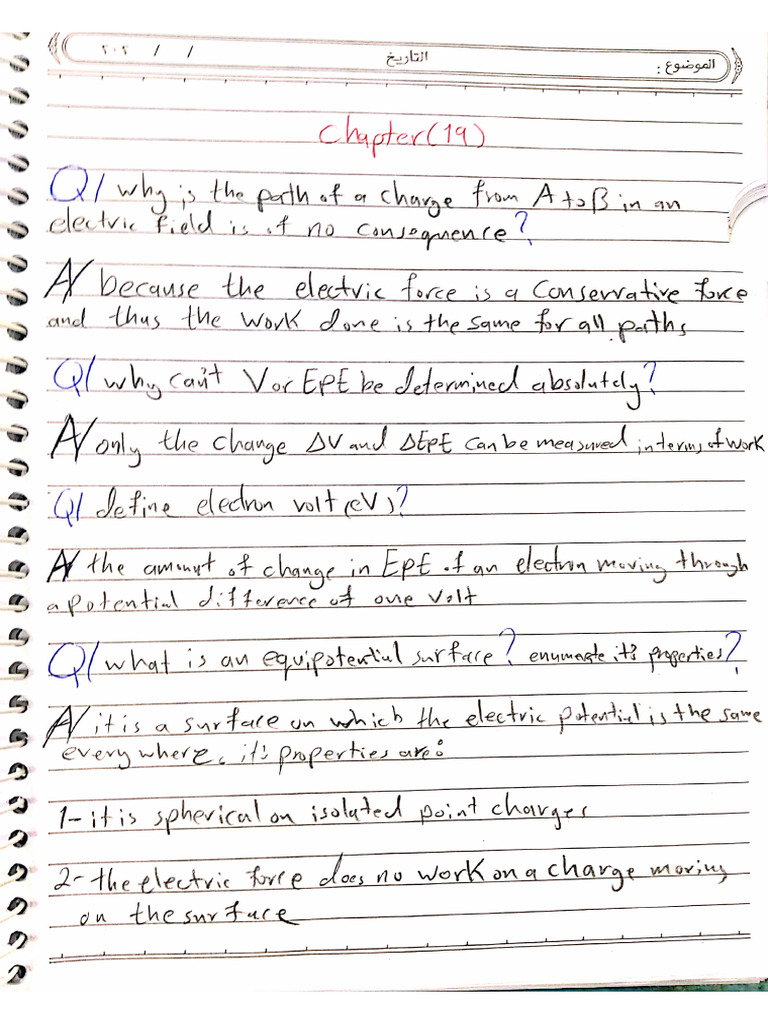 ٢٠٢ / /
التاريخ
الموضوع :
Chapter(19)
Q/ why is the path of a charge from A to B in an
electric field is of no consequence?
A/ because the electric force is a conservative force
and thus the work done is the same for all paths
Q/ why can't V or EPE be determined absolutely?
A/ only the change ΔV and ΔEPE can be measured in terms of work
Q/ define electron volt (eV)?
A/ the amount of change in EPE of an electron moving through
a potential difference of one volt
Q/ what is an equipotential surface? enumerate it's properties?
A/ it is a surface on which the electric potential is the same
everywhere, it's properties are:
1- it is spherical on isolated point charges
2- the electric force does no work on a charge moving
on the surface